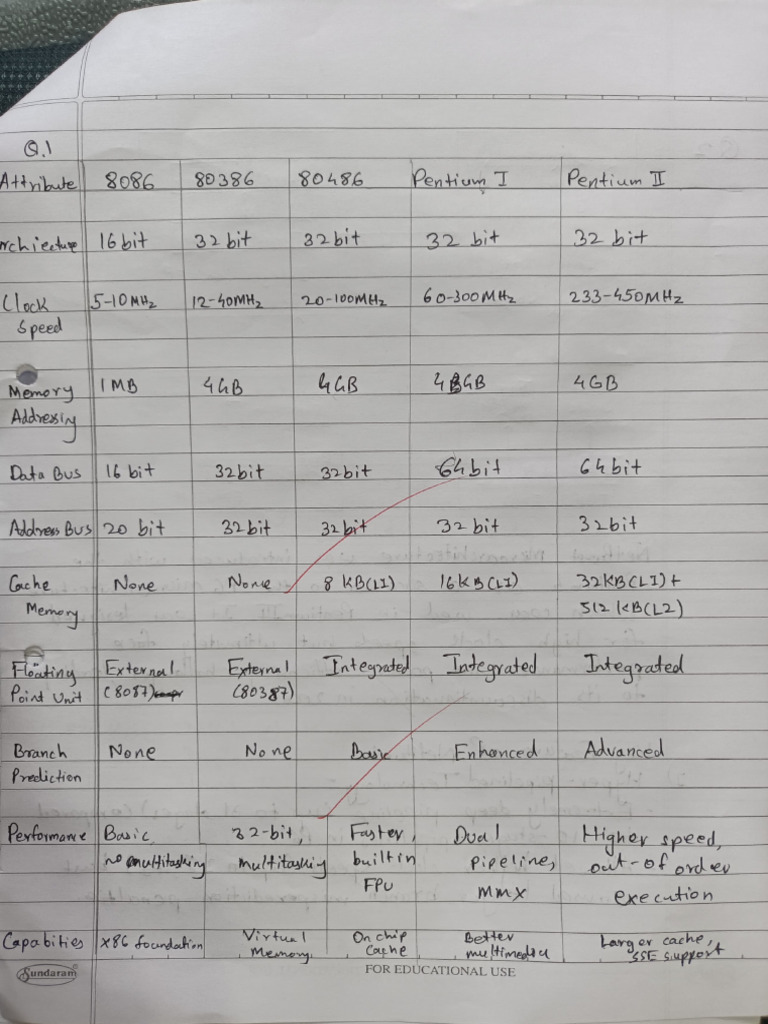 Q.1
Attribute 8086 80386 80486 Pentium I Pentium II
rchiecture 16 bit 32 bit 32 bit 32 bit 32 bit
Clock 5-10 MHz 12-40MHz 20-100MHz 60-300MHz 233-450MHz
Speed
Memory 1 MB 4GB 4GB 4 GB 4GB
Addressing
Data Bus 16 bit 32 bit 32 bit 64 bit 64 bit
Address Bus 20 bit 32 bit 32 bit 32 bit 32 bit
Cache None None 8 KB(L1) 16KB(L1) 32KB(L1) +
Memory 512 KB(L2)
Floating External External Integrated Integrated Integrated
Point Unit (8087) (80387)
Branch None None Basic Enhanced Advanced
Prediction
Performance Basic, 32-bit, Faster, Dual Higher speed,
no multitasking multitasking built in pipeline, out-of order
FPU MMX execution
Capabities x86 foundation Virtual On chip Better Larger cache,
Memory Cache multimedia SSE support
Sundaram FOR EDUCATIONAL USE